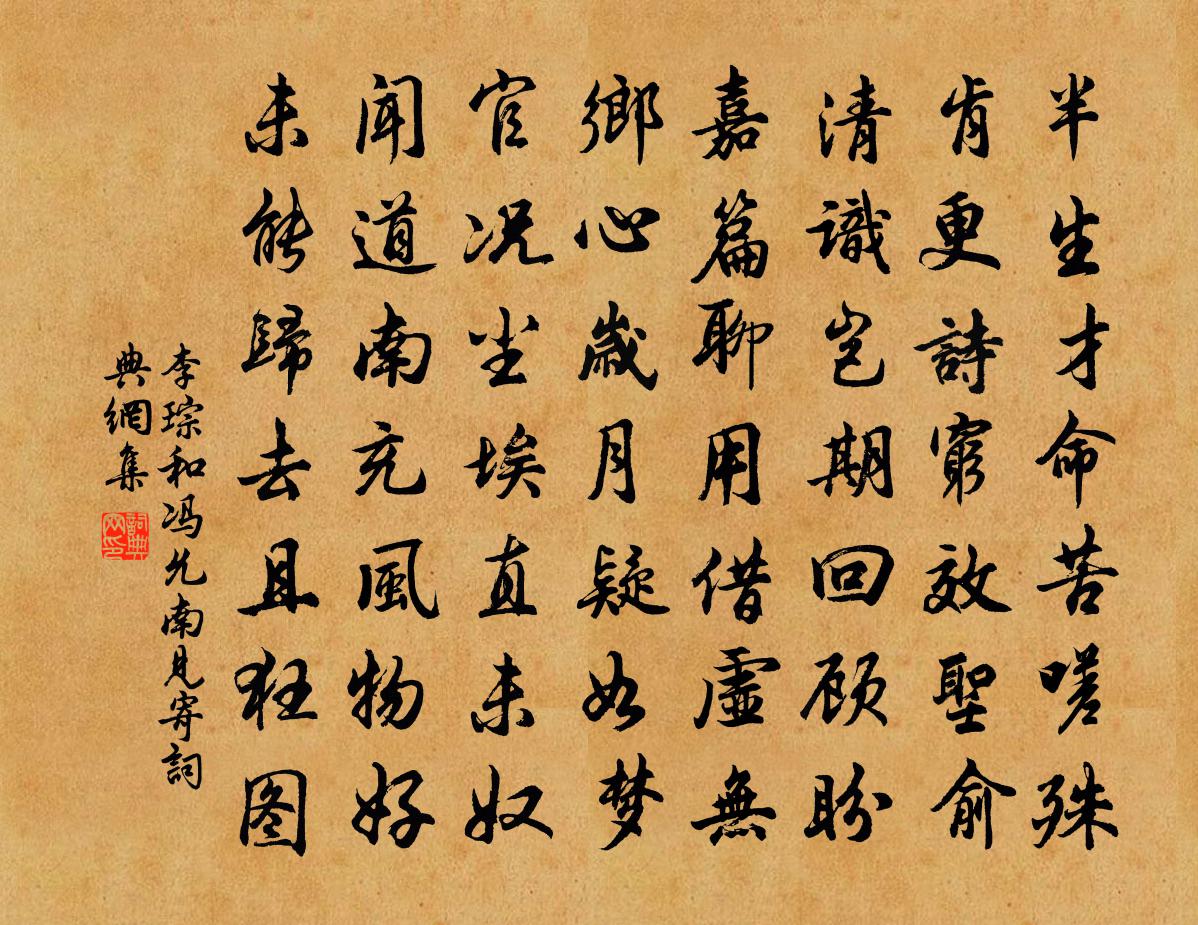 半生才命苦嗟殊
肯更詩窮效聖俞
清識豈期回顾盼
嘉篇聊用借虛無
鄉心歲月疑如梦
官况尘埃直未奴
闻道南充風物好
未能歸去且狂图
李琮和冯允南見寄詞
典網集
詞典
网印